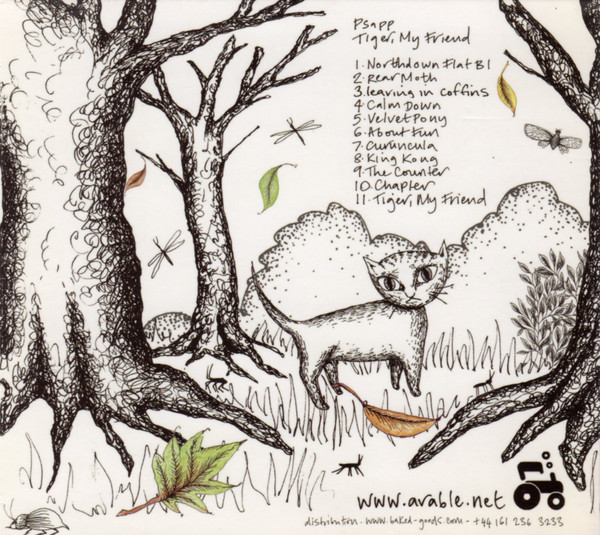 Psapp
Tiger, My Friend
1. Northdown Flat B1
2. Rear Moth
3. leaving in coffins
4. Calm Down
5. Velvet Pony
6. About Fun
7. Curuncula
8. King Kong
9. The Counter
10. Chapter
11. Tiger, My Friend
www.arable.net
distribution - www.baked-goods.com - +44 161 236 3233